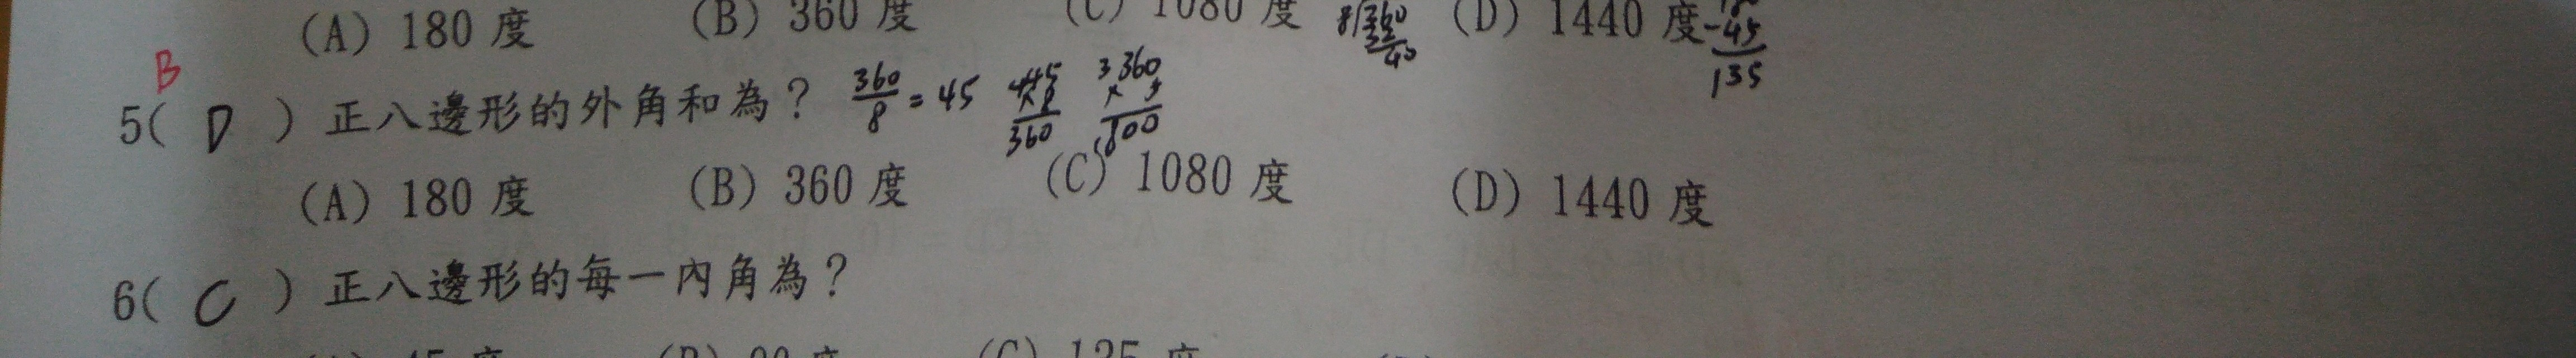 (A) 180 度 (B) 360 度 (C) 1080 度 (D) 1440 度
-45
135
B
5( D ) 正八邊形的外角和為? 360/8 = 45
360
(A) 180 度 (B) 360 度 (C) 1080 度 (D) 1440 度
6( C ) 正八邊形的每一內角為?